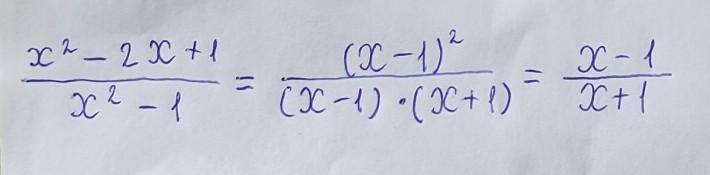 (x² - 2x + 1)/(x² - 1) = (x - 1)²/((x - 1) · (x + 1)) = (x - 1)/(x + 1)